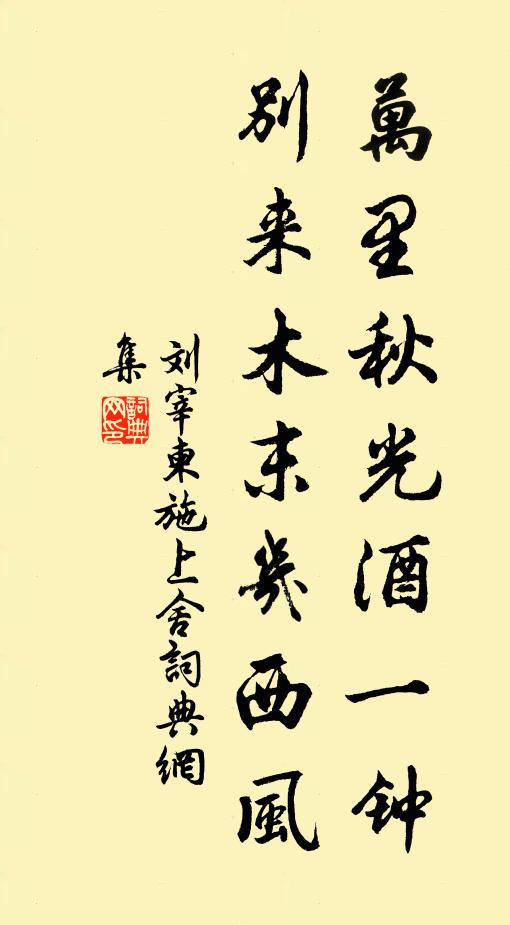 萬里秋光酒一钟
别来木末幾西風
刘宰東施上舍詞典網
集
詞典网印